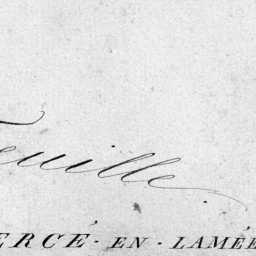 Feuille
ERCÉ-EN-LAMÉE